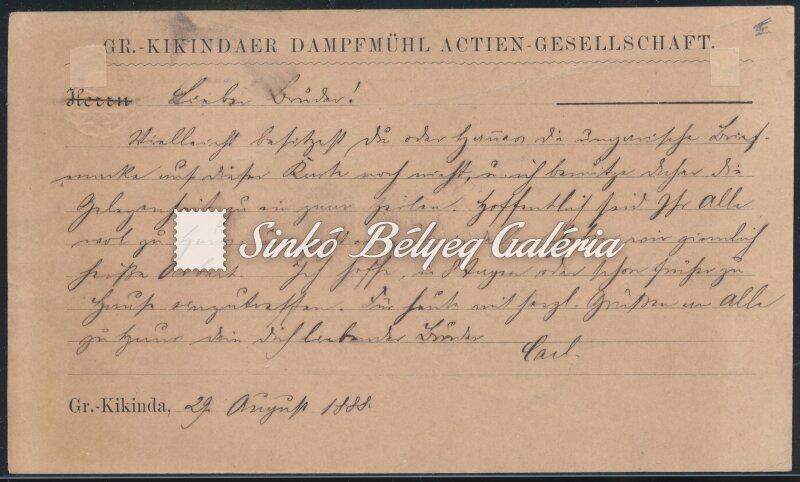 GR.-KIKINDAER DAMPFMÜHL ACTIEN-GESELLSCHAFT.
Herrn Lieber Bruder!
Vielleicht besitzest Du oder Hannes die ungarische Brief-
marke auf dieser Karte noch nicht, u. ich benütze daher die
Gelegenheit zu ein paar Zeilen. Hoffentlich seid Ihr Alle
wol zu wir ziemlich
Sinkó Bélyeg Galéria
heiße Ich hoffe, in Tagen oder schon früher zu
Hause einzutreffen. Für heute mit herzl. Grüßen an Alle
zu Haus Dein Dich liebender Bruder
Carl.
Gr.-Kikinda, 29 August 1888.